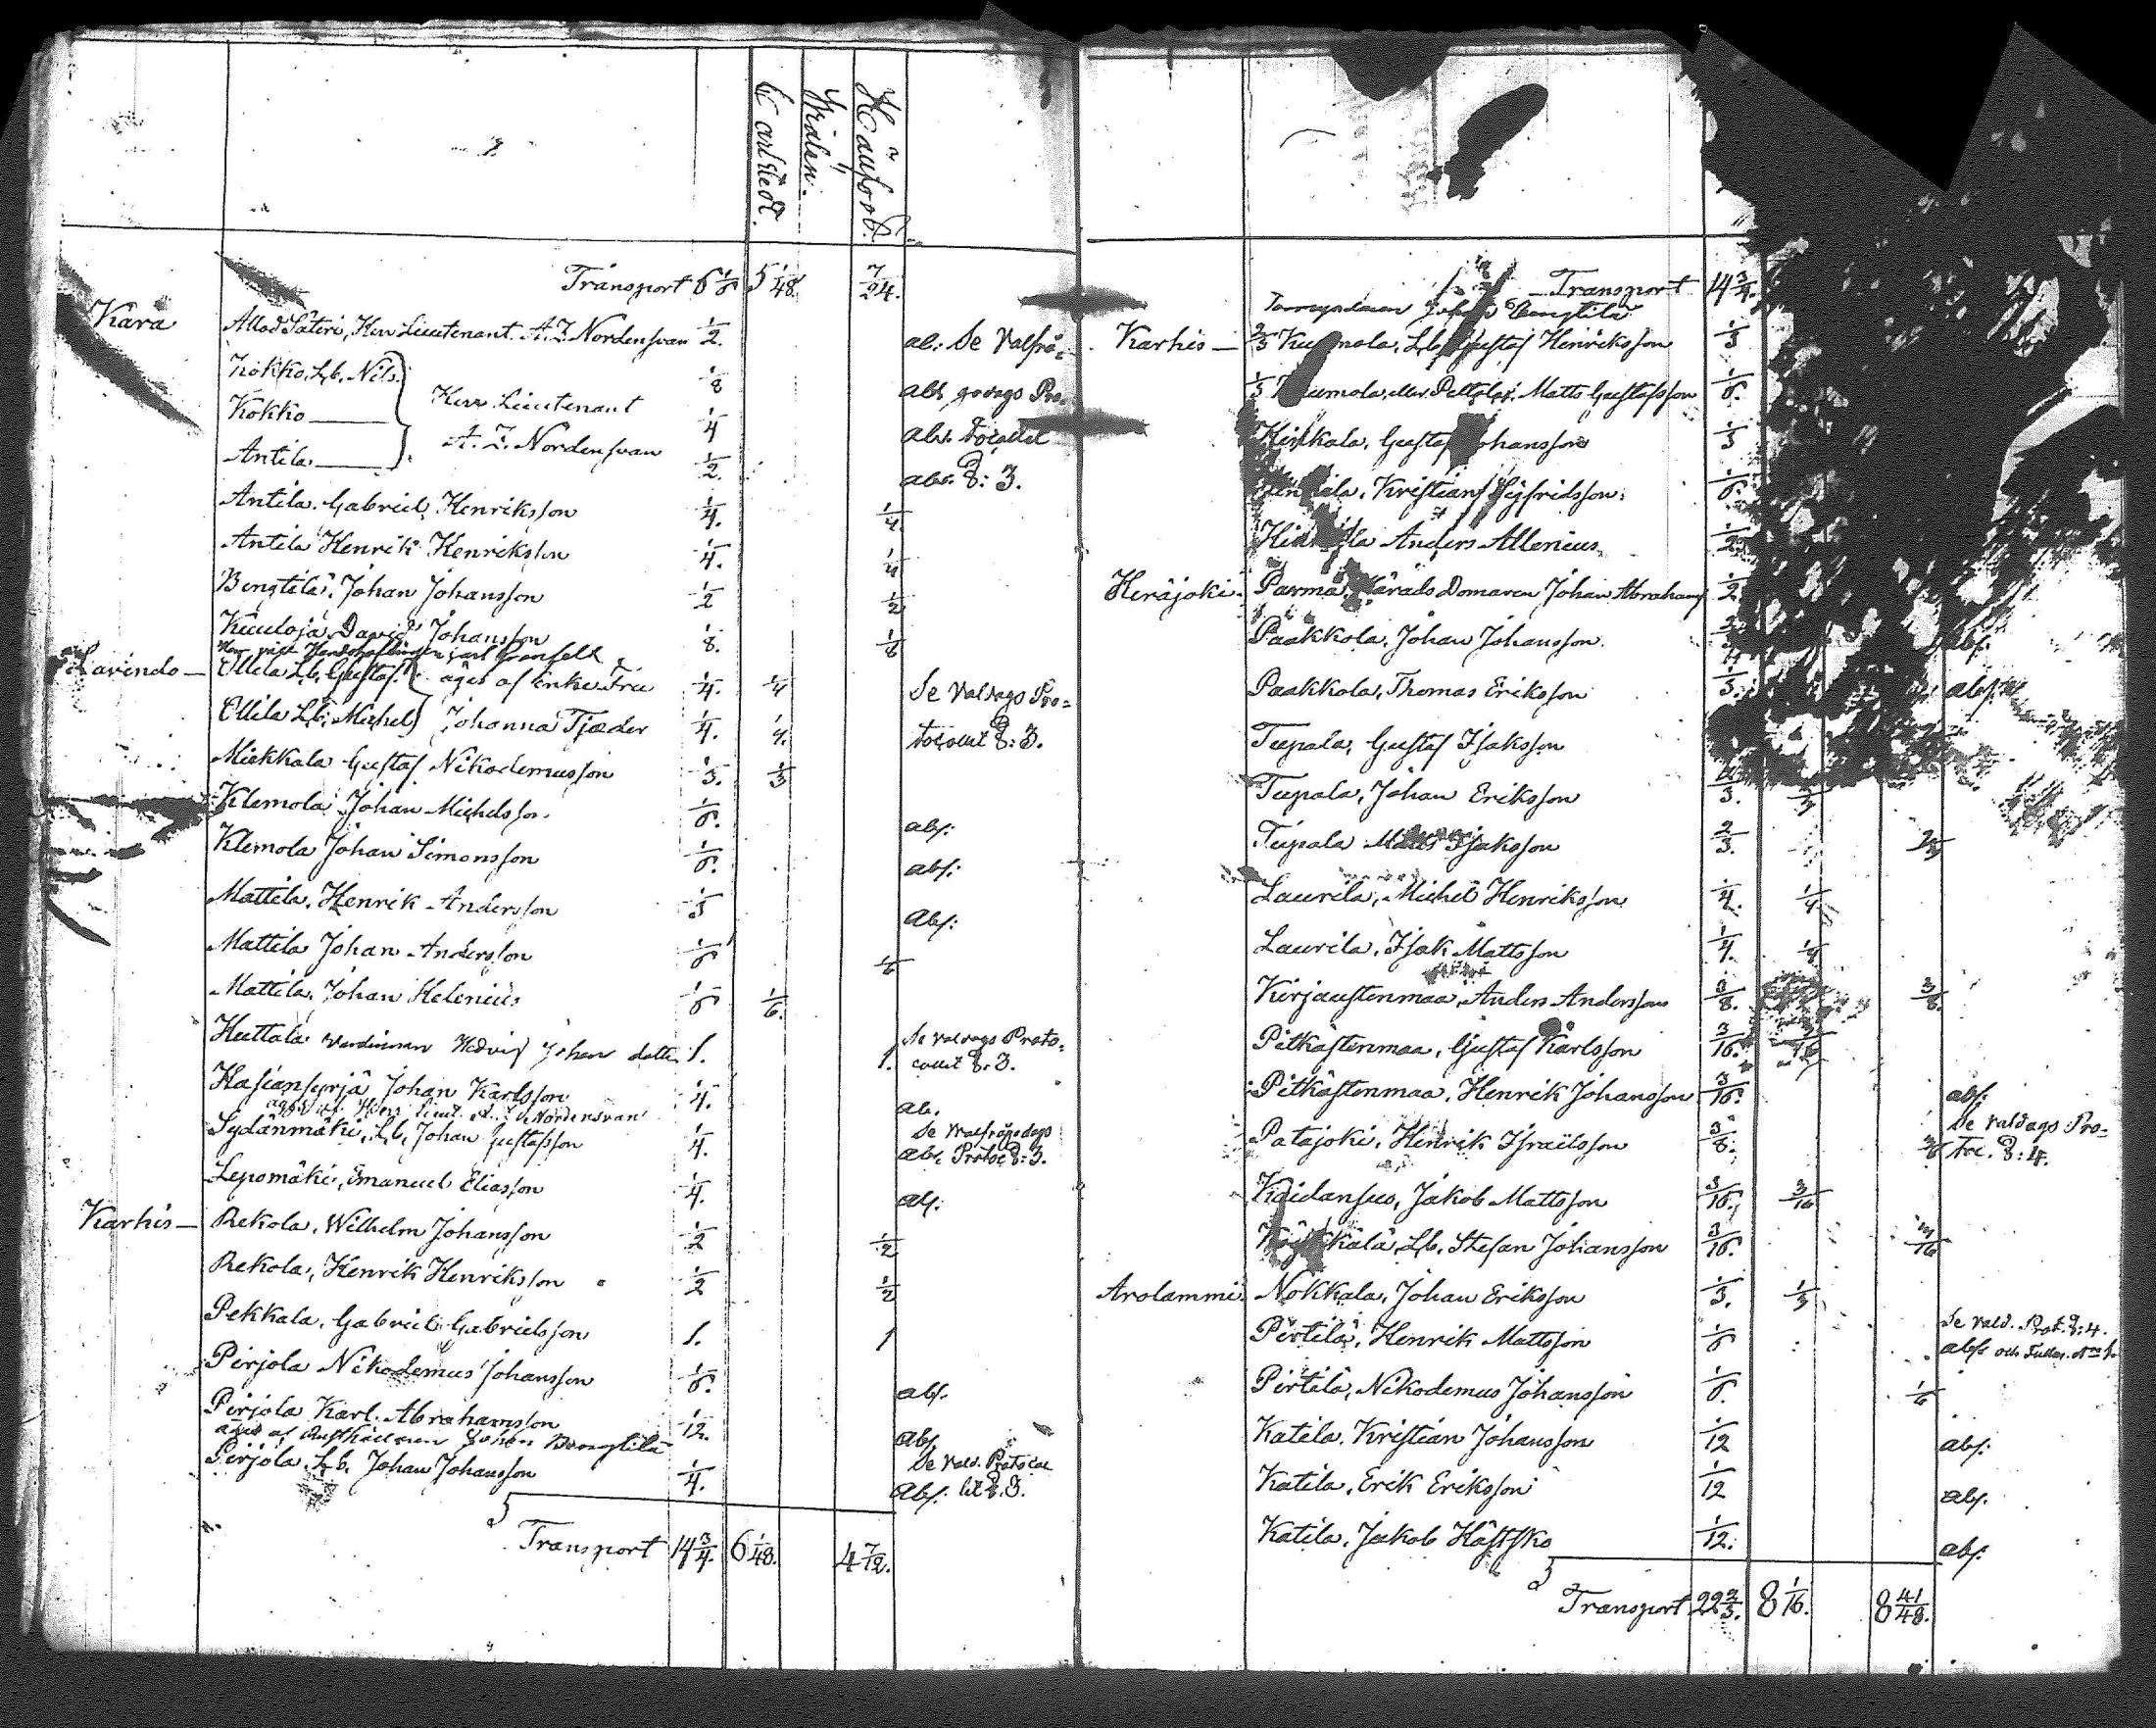 Carlstedt.
Widén.
Hausord.
Transport 6 1/6 5 1/48. 7/24.
Kara Allod Säteri, Herr Lieutenant A. Z. Nordensvan 1/2. ab: Se Valfrä=
Kokko, Lb, Nils 1/8 abs godags Pro=
Kokko — Herr Lieutenant 1/4 abs. tocollet
Antila — A. Z. Nordensvan 1/2. abs. §: 3.
Antila Gabriel Henriksson 1/4. 1/4
Antila Henrik Henriksson 1/4. 1/4
Bengtilä, Johan Johansson 1/2 1/2
Kuuloja, David Johansson 1/8. 1/8
Ollila Lb, Gustaf äges af Enke Fru 1/4. 1/4 Se Valdags Pro=
Ollila Lb, Michel Johanna Tjæder 1/4. 1/4. tocollet §: 3.
Mickkala Gustaf Nikodemusson 1/3. 1/3
Klemola Johan Michelsson. 1/6. abs:
Klemola Johan Simonsson 1/6. abs:
Mattila, Henrik Andersson 1/3 Abs:
Mattila Johan Andersson 1/6 1/6
Mattila, Johan Helenius 1/6 1/6.
Huttala Wärdinnan Hedvig Johans dotter 1. 1. Se Valdags Proto=
collet §. 3.
Hasiansyrjä Johan Karlsson 1/4. ab.
Herr Lieut. A. Z. Nordensvan
Sydänmäki, Lb, Johan Gustafsson 1/4. abs. Protoc §: 3.
Lepomäki, Emanuel Eliasson 1/4. abs.
Karhis — Rekola, Wilhelm Johansson 1/2 1/2
Rekola, Henrik Henriksson 1/2 1/2
Pekkala, Gabriel Gabrielsson 1. 1
Pirjola Nikodemus Johansson 1/6. abs.
Pirjola Karl Abrahamsson 1/12. abs
äges af Rusthållaren Johan Bengtilä Se Vald. Protocol
Pirjola, Lb, Johan Johansson 1/4. Abs. let §. 3.
Transport 14 3/4. 6 1/48. 4 7/12.
Transport 14 3/4.
Johan Bengtilä
Karhis — 2/3 Lb, Gustaf Henriksson 1/3
1/3 Matts Gustafsson 1/6.
Gustaf Johansson 1/3
Kristian Sigfridsson. 1/6.
Anders Allenius 1/2
Heräjoki. Parma, Härads Domaren Johan Abrahams 1/2
Paakkola, Johan Johansson. abs.
Paakkola, Thomas Eriksson abs.
Tupala, Gustaf Isaksson
Tupala, Johan Eriksson
Tupala Matts Isaksson 2/3. 2/3
Laurila, Michel Henriksson 1/4. 1/4
Laurila, Isak Mattsson 1/4. 1/4
Kirjaustenmaa, Anders Andersson 3/8. 3/8.
Pitkästenmaa, Gustaf Karlsson 3/16.
Pitkästenmaa, Henrik Johansson 3/16. abs.
Se Valdags Pro=
Patajoki, Henrik Israelsson 3/8. 3/8 toc. §: 4.
Kaidansuo, Jakob Mattsson 3/16. 3/16
Lb, Stefan Johansson 3/16. 3/16
Arolammi. Nokkala, Johan Eriksson 1/3. 1/3
Se Vald. Prot. §: 4.
Pirtilä, Henrik Mattsson 1/6 abs och Fullm.
Pirtilä, Nikodemus Johansson 1/6. 1/6
Katila, Kristian Johansson 1/12 abs:
Katila, Erik Eriksson 1/12 abs.
Katila, Jakob Hästsko 1/12. abs.
Transport 22 2/3. 8 1/16. 8 41/48.